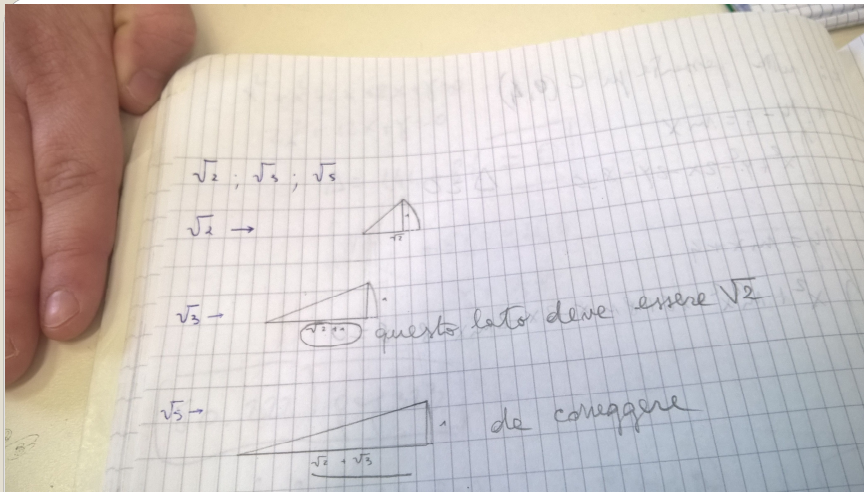 √2 ; √3 ; √5
√2 →
1
√2
√3 →
1
√2 + 1 questo lato deve essere √2
√5 →
1 da correggere
√2 + √3